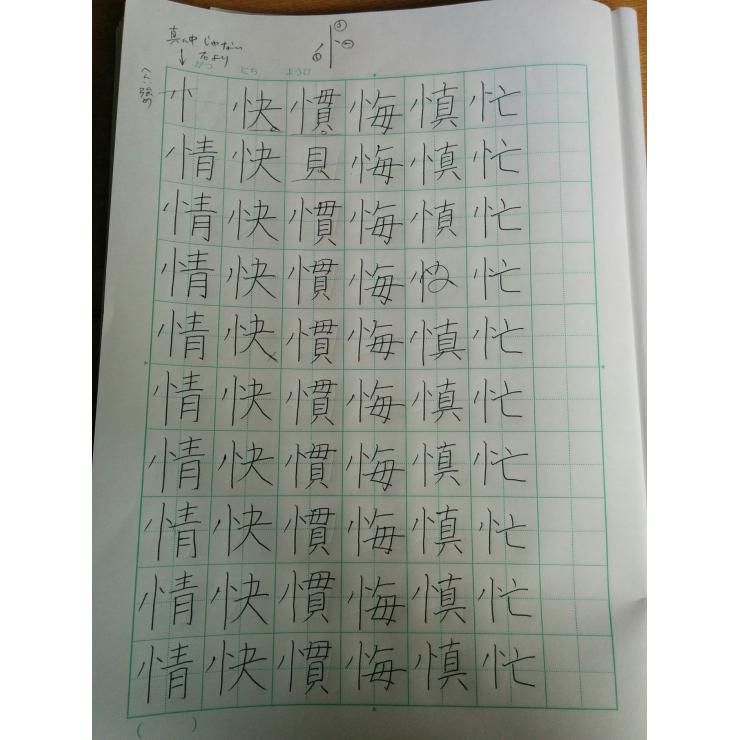 真ん中じゃない
右より
③
①
②
がつ にち ようび
忄 快 慣 悔 慎 忙
情 快 貝 悔 慎 忙
情 快 慣 悔 慎 忙
情 快 慣 悔 忙
情 快 慣 悔 慎 忙
情 快 慣 悔 慎 忙
情 快 慣 悔 慎 忙
情 快 慣 悔 慎 忙
情 快 慣 悔 慎 忙
情 快 慣 悔 慎 忙
( )